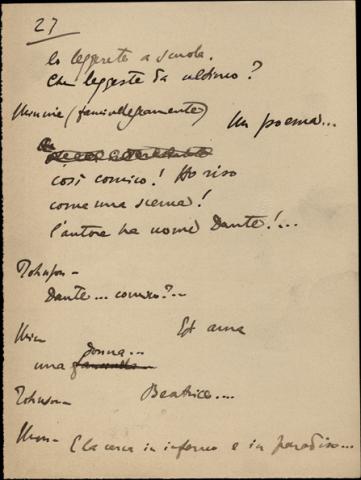 27
lo leggerete a scuola.
Che leggeste da ultimo?
Minnie (fanciullescamente)
Un poema...
così comico! Ho riso
come una scema!
l'autore ha nome Dante!...
Johnson -
Dante... comico?..
Min -
Ed ama
una donna...
Johnson -
Beatrice...
Minn -
E la cerca in inferno e in paradiso...